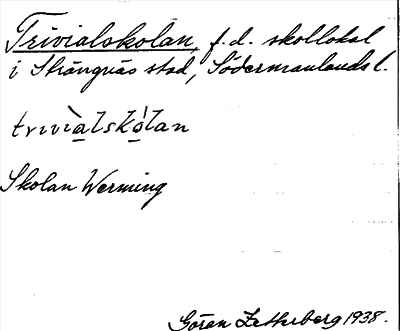 Trivialskolan, f.d. skollokal
i Strängnäs stad, Södermanlands l.
trivìalskòlan
Skolan Werming
Göran Zetterberg 1938.